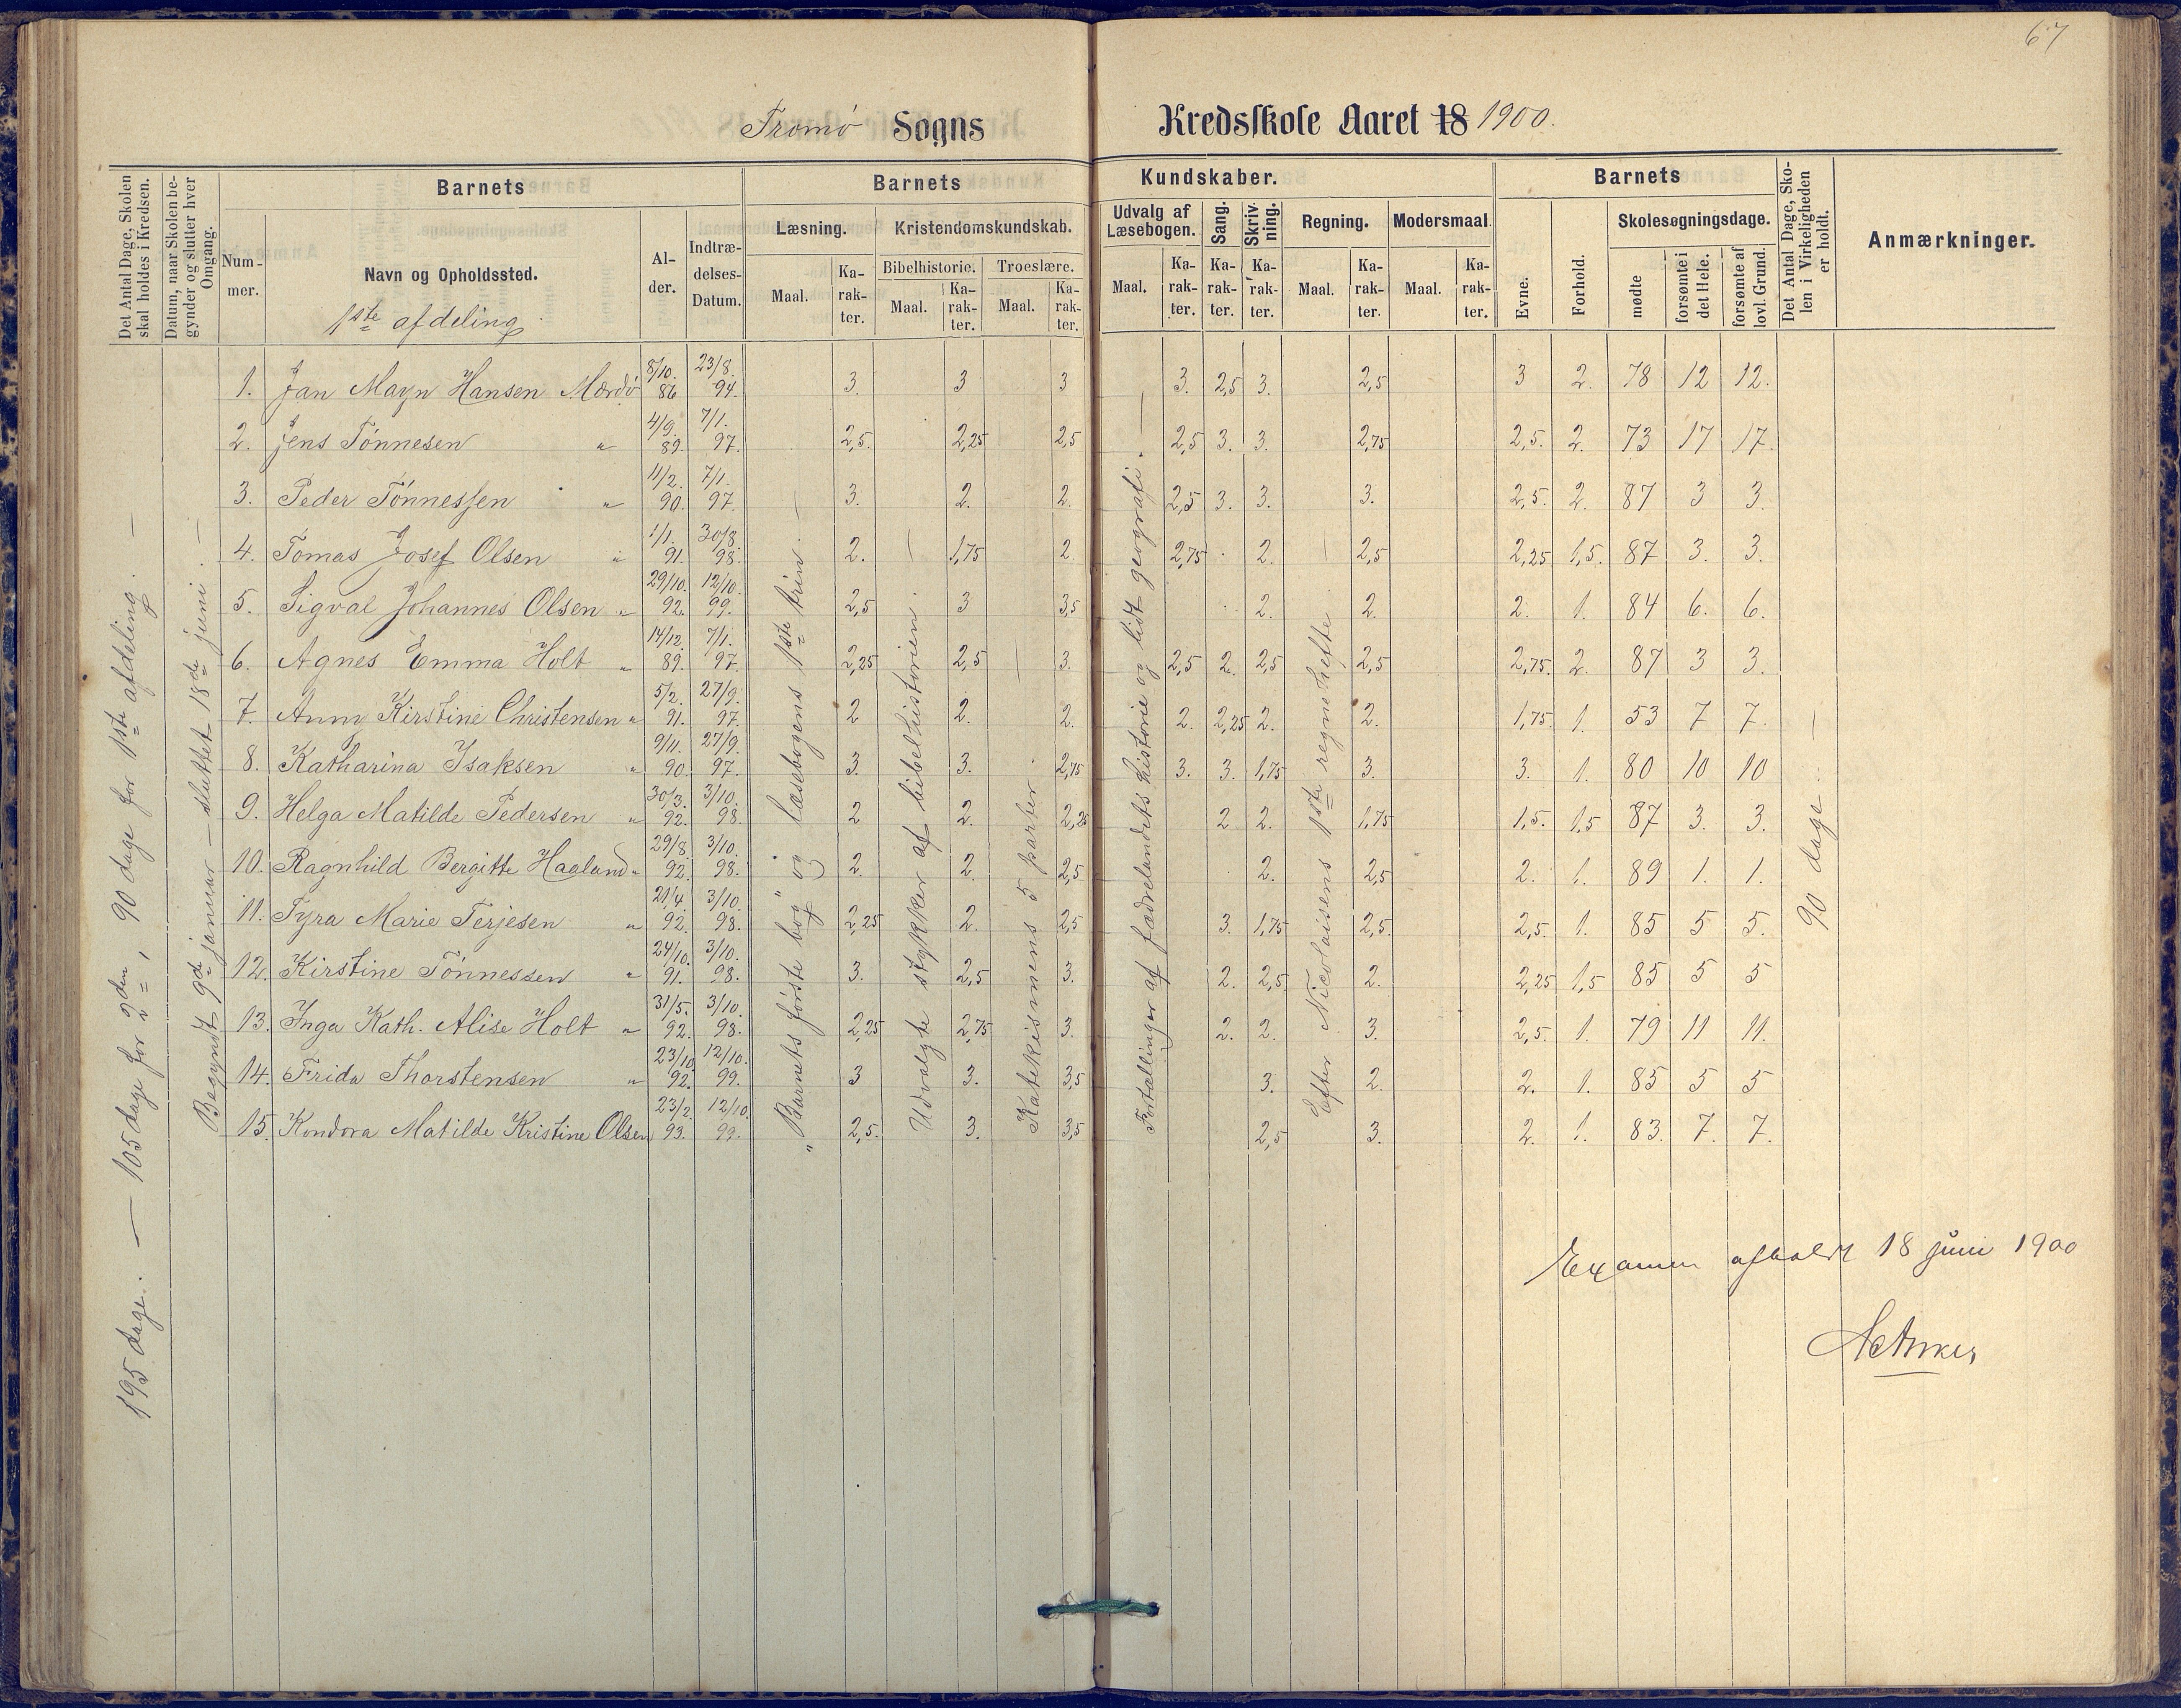 67
Tromø Sogns Kredsskole Aaret 18 1900.
Det Antal Dage, Skolen skal holdes i Kredsen.
Datum, naar Skolen begynder og slutter hver Omgang.
Barnets
Barnets Kundskaber.
Barnets
Det Antal Dage, Skolen i Virkeligheden er holdt.
Anmærkninger.
Num-mer.
Navn og Opholdssted.
Al-der.
Indtræ-delses-Datum.
Læsning.
Kristendomskundskab.
Udvalg af Læsebogen.
Sang.
Skriv-ning.
Regning.
Modersmaal.
Evne.
Forhold.
Skolesøgningsdage.
Maal. Ka-rak-ter.
Bibelhistorie. Maal. Ka-rak-ter.
Troeslære. Maal. Ka-rak-ter.
Maal. Ka-rak-ter. Ka-rak-ter. Ka-rak-ter. Maal. Ka-rak-ter. Maal. Ka-rak-ter.
mødte forsømte i det Hele. forsømte af lovl. Grund.
1ste afdeling
1. Jan Mayn Hansen Mærdø 8/10. 86 23/8. 94. 3. 3 3 3. 2,5 3. 2,5 3 2. 78 12 12.
2. Jens Tönnesen " 4/9. 89. 7/1. 97. 2,5. 2,25 2,5 2,5 3. 3. 2,75 2,5. 2. 73 17 17.
3. Peder Tönnessen " 11/2. 90. 7/1. 97. 3. 2. 2. 2,5 3. 3. 3. 2,5. 2. 87 3 3.
4. Tomas Josef Olsen " 1/1. 91. 30/8. 98. 2. 1,75 2. 2,75 2. 2,5 2,25 1,5. 87 3. 3.
5. Sigval Johannes Olsen " 29/10. 92. 12/10. 99. 2,5 3 3,5 2. 2. 2. 1. 84 6. 6.
6. Agnes Emma Holt " 14/12. 89. 7/1. 97. 2,25 2,5 3. 2,5 2. 2,5 2,5 2,75. 2. 87 3 3.
7. Anny Kirstine Christensen " 5/2. 91. 27/9. 97. 2 2. 2. 2. 2,25 2. 2. 1,75. 1. 53 7 7.
8. Katharina Isaksen " 9/11. 90. 27/9. 97. 3. 3. 2,75 3. 3. 1,75 3. 3. 1. 80 10 10
9. Helga Matilde Pedersen " 30/3. 92. 3/10. 98. 2 2. 2,25 2 2. 1,75 1,5. 1,5 87 3. 3.
10. Ragnhild Bergitte Haaland " 29/8. 92. 3/10. 98. 2. 2. 2,5 2. 2,5 2. 1. 89 1. 1.
11. Tyra Marie Terjesen " 21/4. 92. 3/10. 98. 2,25 2. 2,5 3. 1,75 2,5. 2,5. 1. 85 5 5.
12. Kirstine Tönnessen " 24/10. 91. 3/10. 98. 3. 2,5 3. 2. 2,5 2. 2,25 1,5 85 5 5
13. Inga Kath. Alise Holt " 31/5. 92. 3/10. 98. 2,25 2,75 3. 2. 2. 3. 2,5. 1. 79 11 11.
14. Frida Thorstensen " 23/10 92. 12/10. 99. 3 3. 3,5 3. 2. 2. 1. 85 5 5
15. Kondora Matilde Kristine Olsen 23/2. 93. 12/10. 99. 2,5. 3. 3,5 2,5 3. 2. 1. 83. 7. 7.
195 dage. — 105 dage for 2den, 90 dage for 1ste afdeling. —
Begyndt 9de januar — sluttet 18de juni. —
"Barnets første bog" og læsebogens 1ste trin. —
Udvalgte stykker af bibelhistorien. —
Katekismens 5 parter. —
Fortællinger af fædrelandets historie og lidt geografi. —
Efter Nicolaisens 1ste regnehefte. —
90 dage. —
Examen afholdt 18 juni 1900